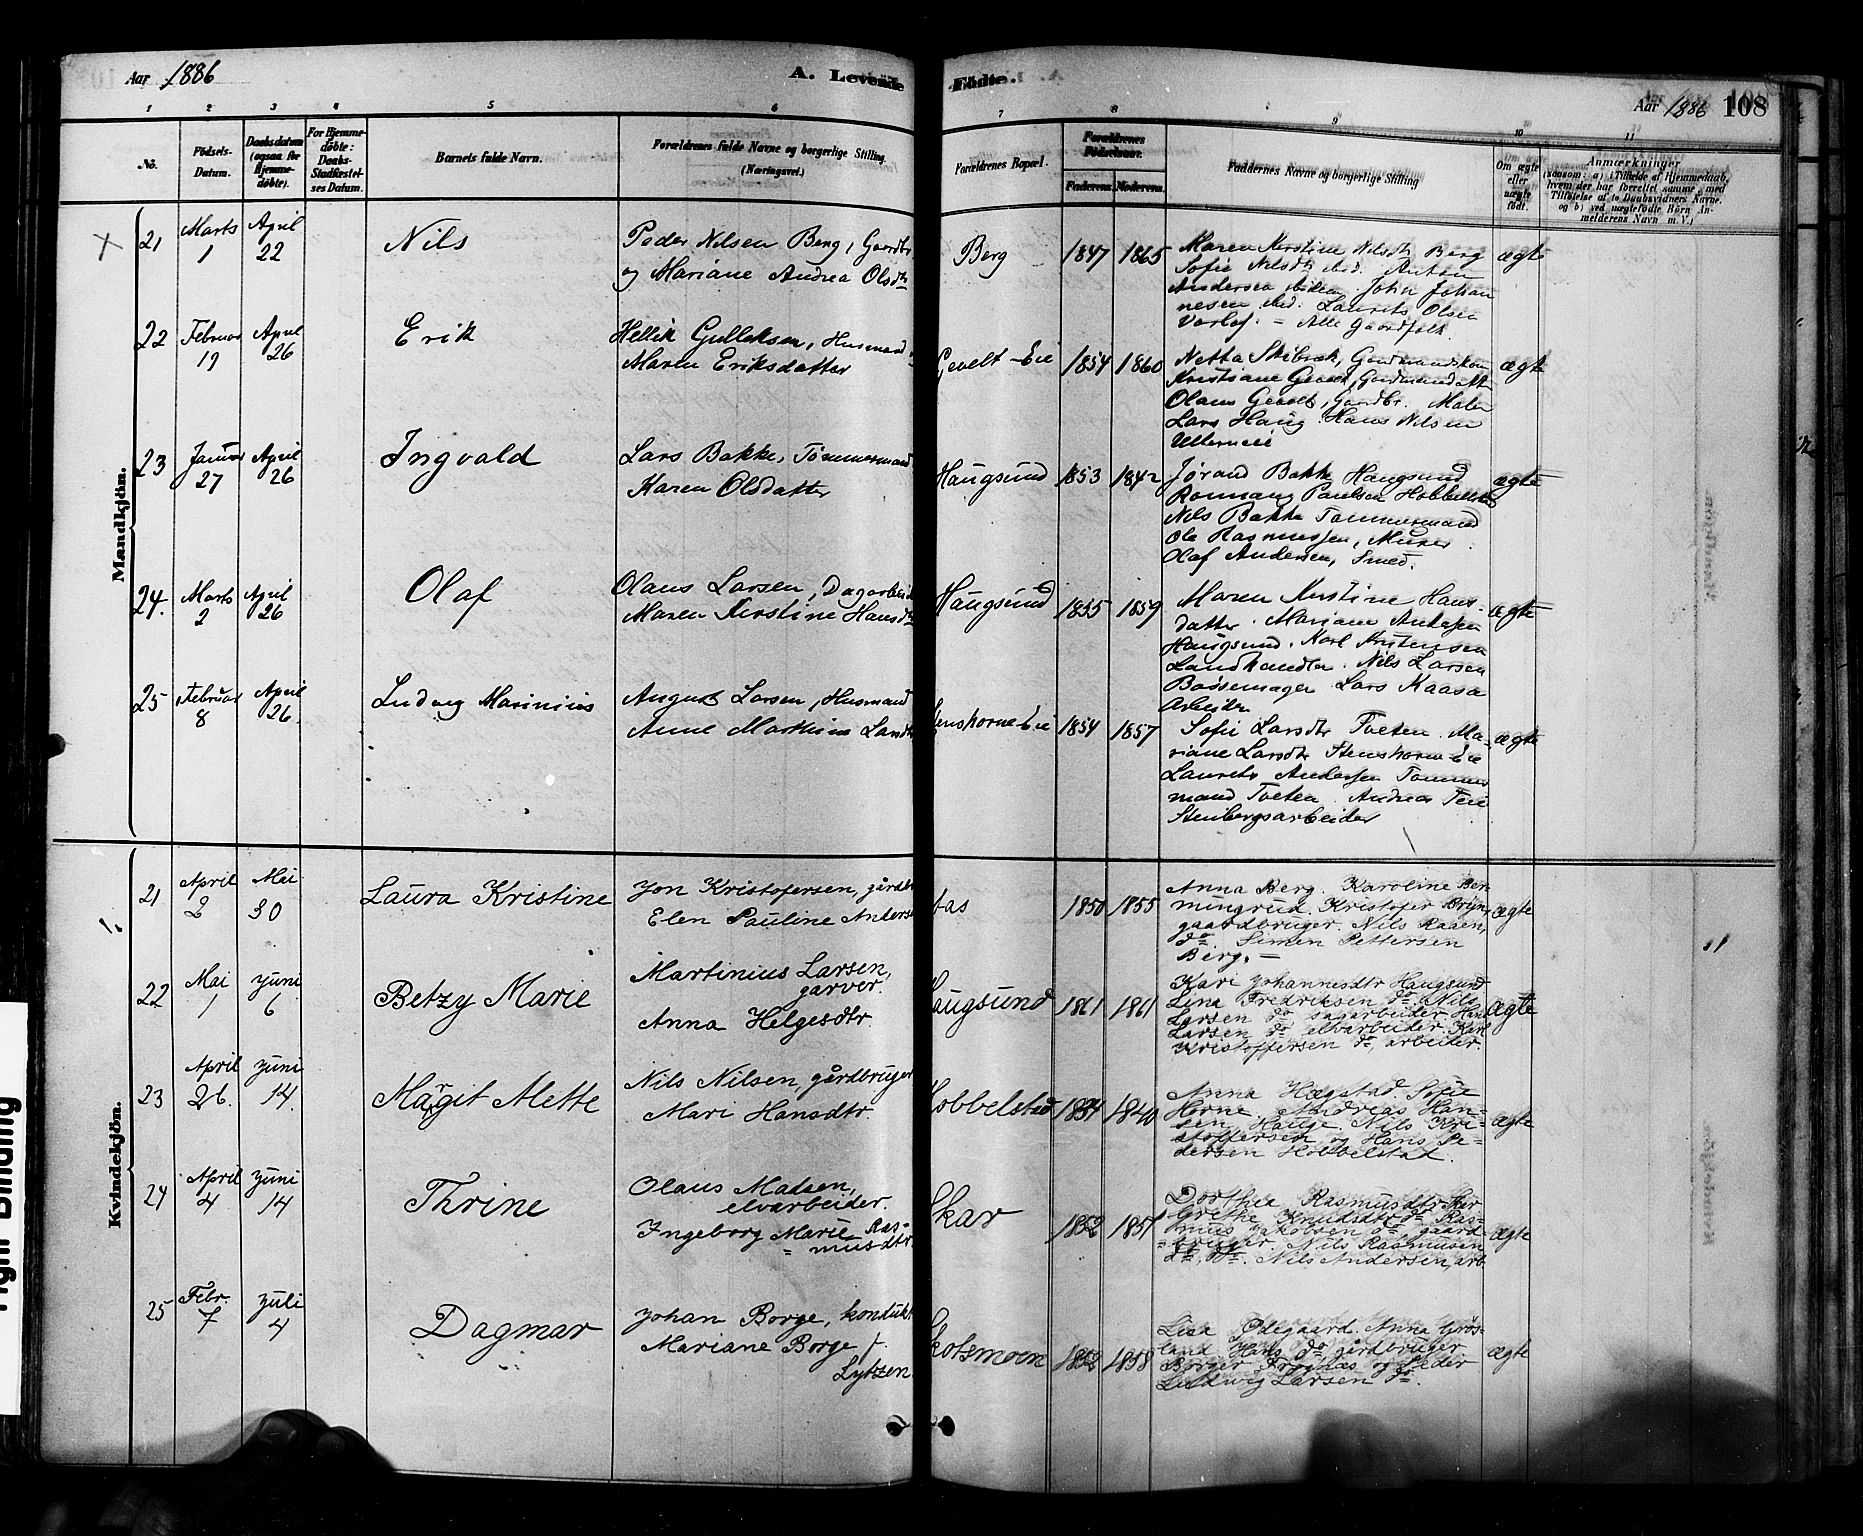 Aar 1886
A. Levende Födte.
Aar 1886 108
1 2 3 4 5 6 7 8 9 10 11
No.
Födsels-Datum.
Daabsdatum (ogsaa for Hjemme-døbte).
For Hjemme-døbte: Daabs-Stadfæstel-ses Datum.
Barnets fulde Navn.
Forældrenes fulde Navne og borgerlige Stilling. (Næringsvei.)
Forældrenes Bopæl.
Forældrenes Födselsaar.
Faderens. Moderens.
Faddernes Navne og borgerlige Stilling
Om ægte eller uægte født.
Anmærkninger
(saasom: a) i Tilfælde af Hjemmedaab, hvem der har forrettet samme, med Tilføielse af to Daabsvidners Navne, og b) ved uægtefødte Börn An-melderens Navn m. V.)
Mandkjön.
21 Marts 1 April 22 Nils
Peder Nilsen Berg, Gaardbr
og Mariane Andrea Olsdtr
Berg 1847 1865
Maren Kirstine Nilsdtr Berg
Sofie Nilsdtr ibid. Anton
Andersen ibidem. John Johan
nesen ibid. Laurits Olsen
Varlof. – Alle Gaardfolk.
ægte
22 Februar 19 April 26 Erik
Hellik Gulliksen, Husmand
Maren Eriksdatter
Gevelt-Eie 1854 1860
Netta Skibræk, Gaardmandskone
Kristiane Gevelt, Gaardmandsdatt
Olaus Gevelt, Gaardbr. Maler
Lars Haug. Hans Nilsen
ægte
23 Januar 27 April 26 Ingvald
Lars Bakke, Tømmermand
Karen Olsdatter
Haugsund 1853 1842
Jørand Bakke Haugsund
Ronnaug Paulsen Hobbelstad
Nils Bakke Tømmermand
Ole Rasmussen, Murer
Olaf Andersen, Smed.
ægte
24. Marts 2 April 26 Olaf
Olaus Larsen, Dagarbeid
Maren Kirstine Hansdtr
Haugsund 1855 1859
Maren Kirstine Hans-
datter. Mariane Andersen
Haugsund. Karl Kristensen
Landhandler. Nils Larsen
Bøssemager. Lars Kaasa
Arbeider
ægte
25 Februar 8 April 26. Ludvig Marinius
August Larsen, Husmand
Anne Marthine Larsdtr
Stenshorne-Eie 1854 1857
Sofie Larsdtr Tveten. Ma-
riane Larsdtr Stenshorn-Eie
Laurits Andersen Tømmer
mand Tveten. Andreas Teie
Stenbergsarbeider
ægte
Kvindekjön.
21 April 2 Mai 30 Laura Kristine
Jon Kristofersen, gårdbr
Elen Pauline Anders
aas 1850 1855
Anna Berg. Karoline Ben
mingrud. Kristofer Bryn,
gaardbruger. Nils Raaen,
do. Simen Pettersen
Berg. –
ægte
22 Mai 1 Juni 6 Betzy Marie
Martinius Larsen,
garver.
Anna Helgesdtr.
Haugsund 1861 1861
Kari Johannesdtr Haugsund
Lina Fredriksen do. Nils
Larsen do sagarbeider. Hans
Larsen do elvarbeider. Karl
Kristoffersen do, arbeider.
ægte
23 April 26. Juni 14. Margit Mette
Nils Nilsen, gårdbruger
Mari Hansdtr.
Hobbelstad 1834 1840
Anna Hægstad. Sofie
Horne. Andreas Han-
sen, Hauge. Nils Kri-
stoffersen og Hans Pe-
dersen Hobbelstad.
ægte
24 April 4 Juni 14 Thrine
Olaus Madsen,
elvarbeider.
Ingeborg Marie Ras-
musdtr.
Skar 1852 1857
Dorthea Rasmusdtr Skar
Grethe Knudsdtr do. Ras-
mus Jakobsen do gaard-
bruger. Nils Rasmusen
do, do. Nils Andersen, arb
ægte
25 Febr. 7 Juli 4 Dagmar
Johan Borge, kondukt
Mariane Borge f.
Lytzen
Skotsmoen 1852 1858
Lisa Ødegaard. Anna Grøs-
land. Hans do gårdbruger
Borger Frognæs og Peder
Ludvig Larsen do.
ægte